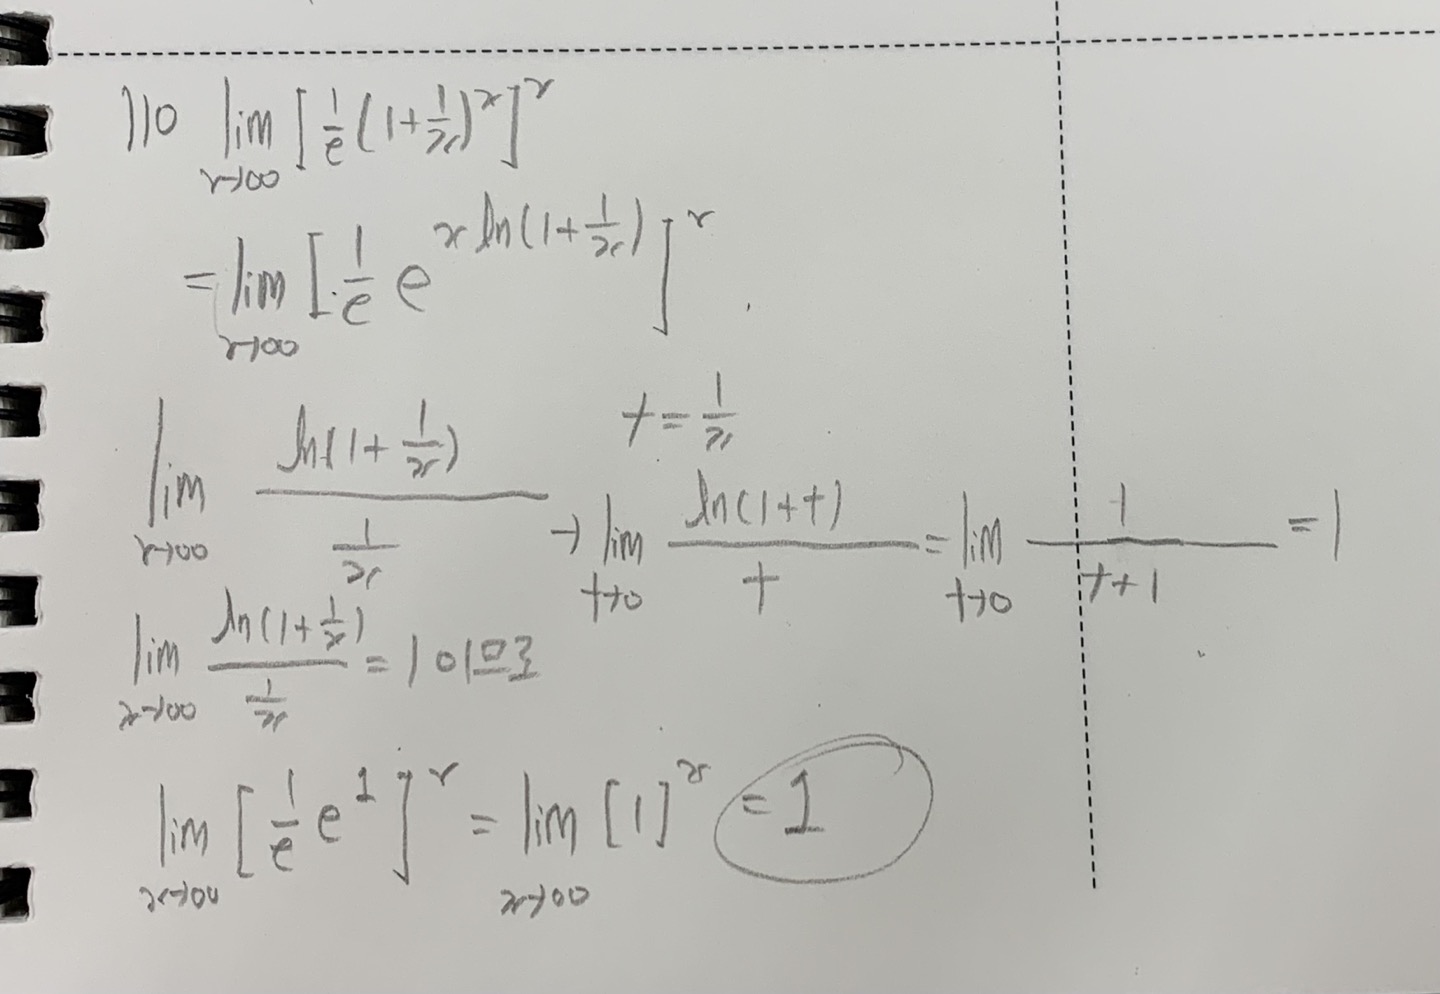 110 lim x→∞ [1/e (1+1/x)^x]^x
= lim x→∞ [1/e e^(x ln(1+1/x))]^x
t = 1/x
lim x→∞ ln(1+1/x) / (1/x) → lim t→0 ln(1+t) / t = lim t→0 1/(t+1) = 1
lim x→∞ ln(1+1/x) / (1/x) = 1 이므로
lim x→∞ [1/e e^1]^x = lim x→∞ [1]^x = 1